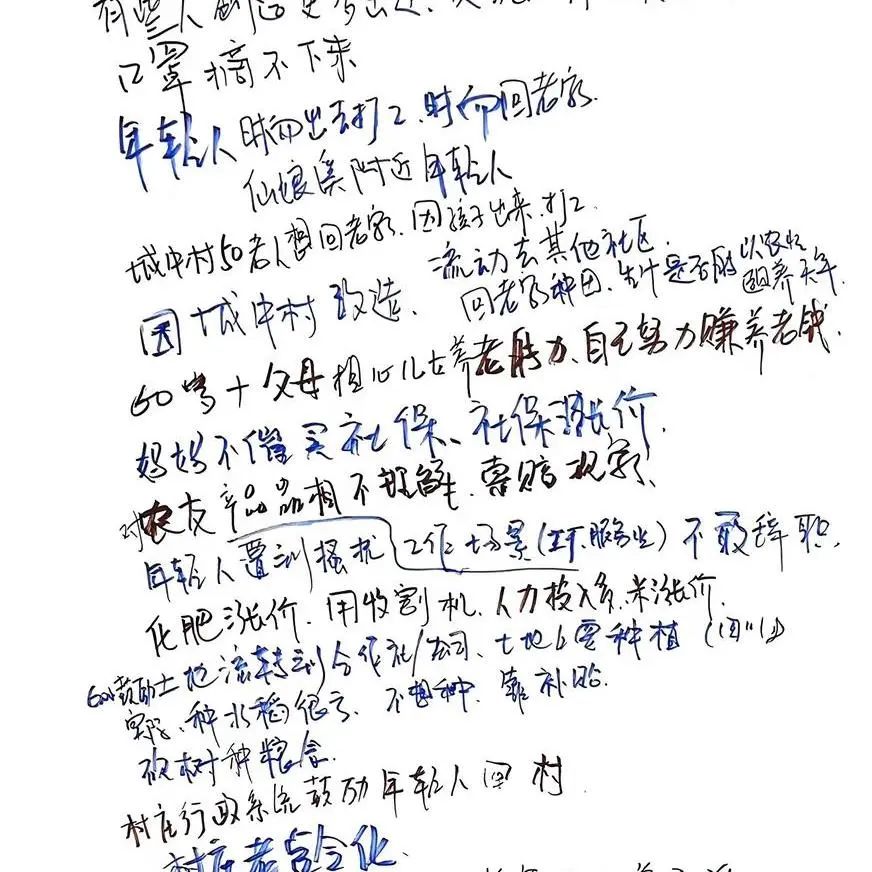 有些人
口罩摘不下来
年轻人 时而出去打工、时而回老家.
仙娘溪附近年轻人
城中村50老人想回老家、因孩子出来打工.
因城中村改造、流动去其他社区.
回老家种田、生计是否能以农业养天年
60岁+父母担心儿女养老能力、自己努力赚养老钱.
妈妈不催买社保、社保涨价.
对农友产品品相不理解、
年轻人遭到骚扰 工作场景(工厂.服务业) 不敢辞职.
化肥涨价、用收割机、人力投入多、米涨价.
鼓励土地流转到合作社/公司、土地上要种植
种水稻很亏、不想种、靠补贴.
砍树种粮食.
村庄行政系统鼓励年轻人回村
村庄老龄化.